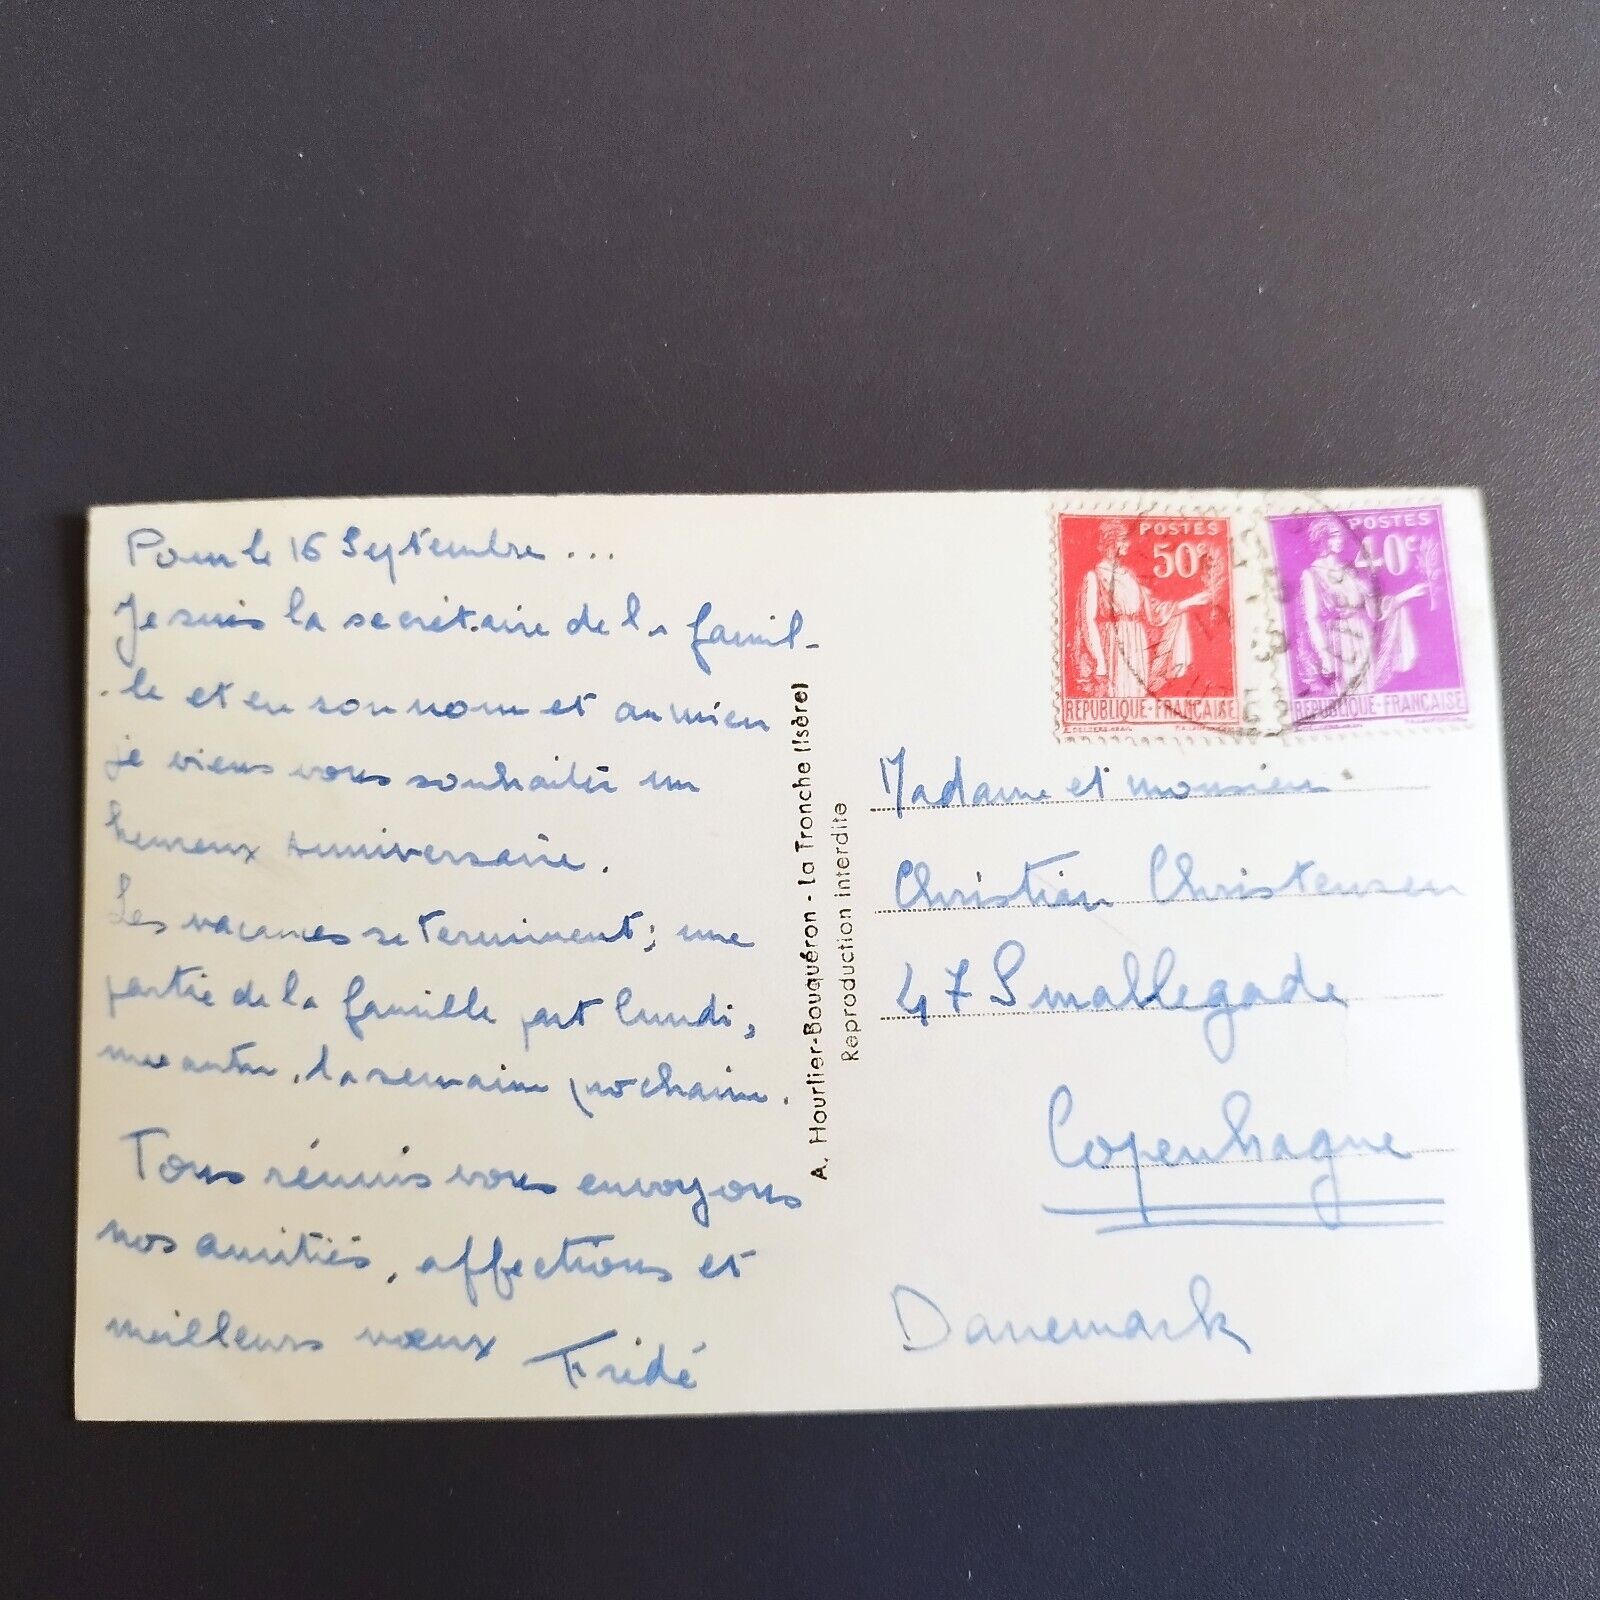 Pour le 16 Septembre ...
Je suis la secrétaire de la famil-
-le et en son nom et au mien
je viens vous souhaiter un
heureux anniversaire.
Les vacances se terminent; une
partie de la famille part lundi,
une autre, la semaine prochaine.
Tous réunis vous envoyons
nos amitiés, affections et
meilleurs vœux Fridé
A. Hourlier-Bouquéron - La Tronche (Isère)
Reproduction interdite
POSTES
50c
RÉPUBLIQUE-FRANÇAISE
POSTES
40c
RÉPUBLIQUE-FRANÇAISE
Madame et monsieur
Christian Christensen
47 Smallegade
Copenhague
Danemark